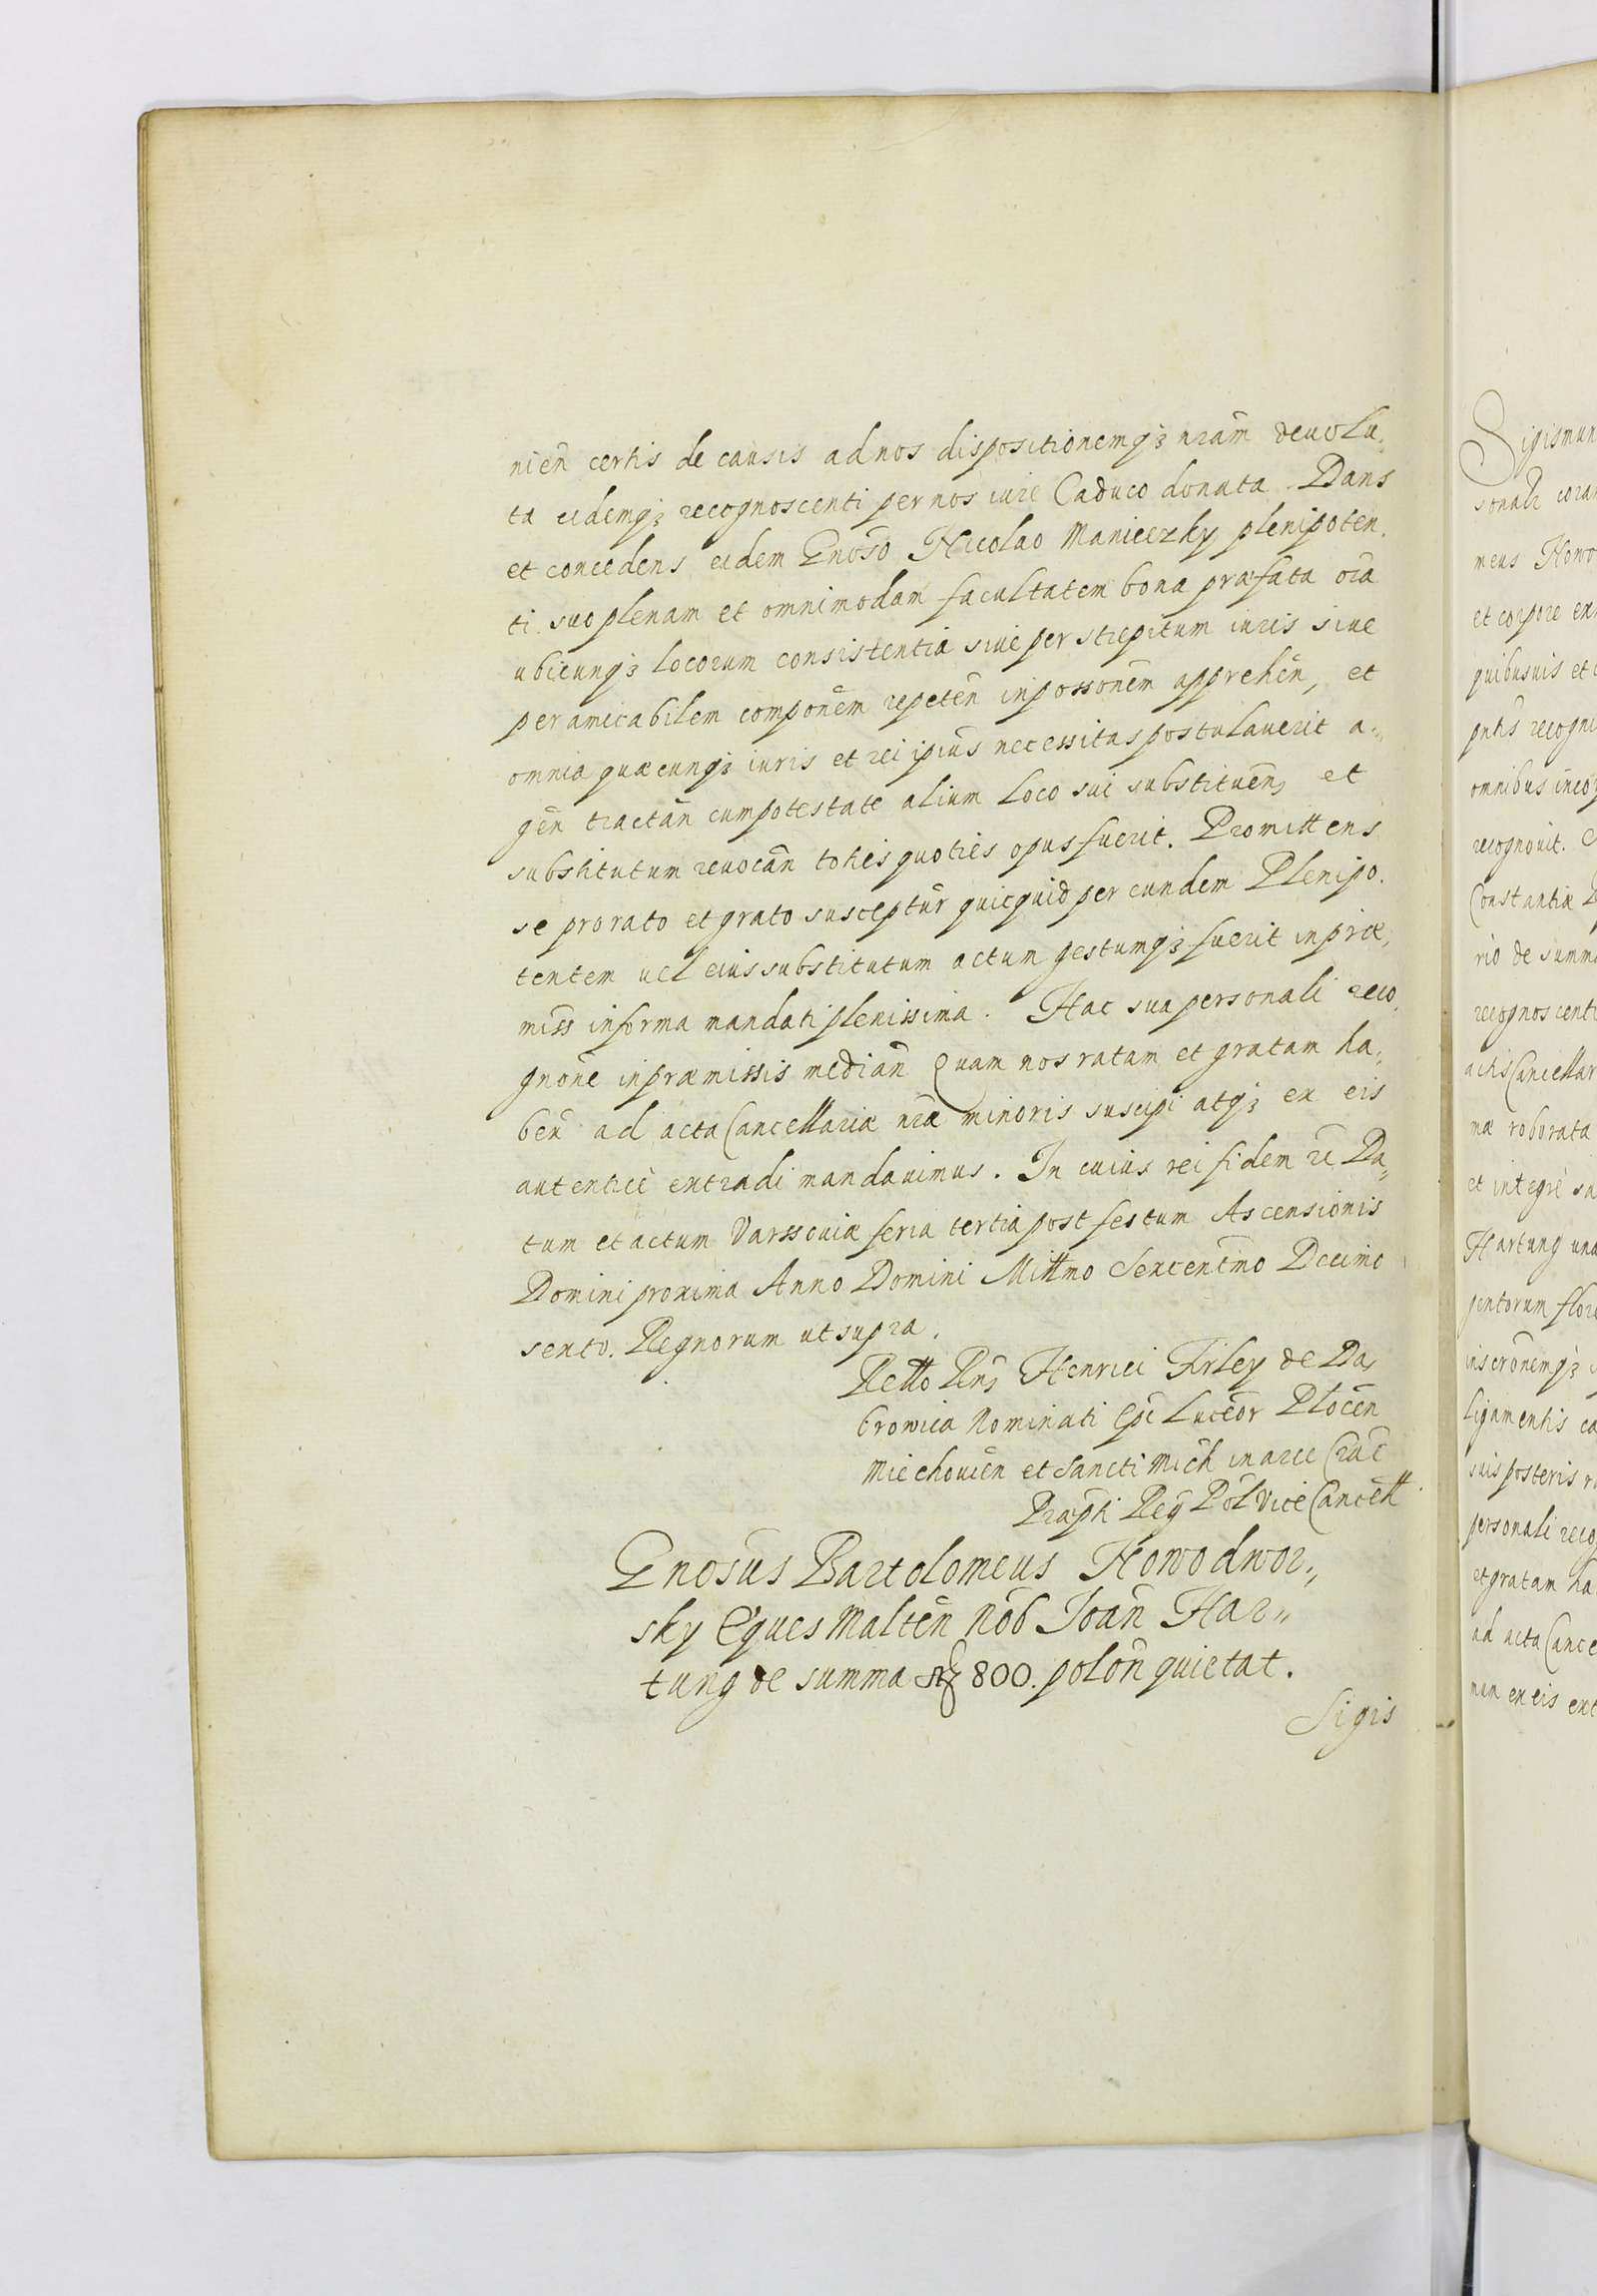 nień certis de causis ad nos dispositionemqꝫ nrām deuolu,
ta eidemqꝫ recognoscenti per nos iure Caduco donata. Dans
et concedens eidem Gnoso Nicolao Manieczky plenipoten,
ti suo plenam et omnimodam facultatem bona præfata oīa
ubicunqꝫ locorum consistentia siue per strepitum iuris siue
per amicabilem componēm repetēn in possonēm apprehēn, et
omnia quæcunqꝫ iuris et rei ipiūs necessitas postulauerit a„
gēn tractān cum potestate alium loco sui substituēn, et
substitutum reuocān toties quoties opus fuerit. Promittens
se pro rato et grato susceptūr quicquid per eundem Plenipo,
tentem uel eius substitutum actum gestumqꝫ fuerit in præ,
miss in forma mandati plenissima. Hac sua personali reco,
gnone in præmissis mediān Quam nos ratam et gratam ha„
ben ad acta Cancellariæ nræ minoris suscipi atqꝫ ex eis
autenticè extradi mandauimus. In cuius rei fidem rc̄ Da„
tum et actum Varssouiæ feria tertia post festum Ascensionis
Domini proxima Anno Domini Millmo Sexcentmo Decimo
sexto. Regnorum ut supra.
Rello Rn̄s Henrici Firley de Da,
browica Nominati Ep̄i Lucēor Plocēn
Miechouiēn et Sancti Mich in arce Crāc
Præpti Reg Pol Vice Cancell
Gnosus Bartolomeus Nowodwor„
sky Eques Maltēn Nob Joān Har„
tung de summa flꝫ 800. polōn quietat.
Sigis
Sigismun
sonalr coram
meus Nowo
et corpore ex
quibusuis et
pntis recogni
omnibus incor
recognouit.
Constantiæ
rio de summa
recognoscenti
actis Cancellar
næ roborata
et integrè sa
Hartung una
gentorum flore
inscronemqꝫ
ligamentis ca
suis posteris
personali reco
et gratam ha
ad acta Cance
mus ex eis ext